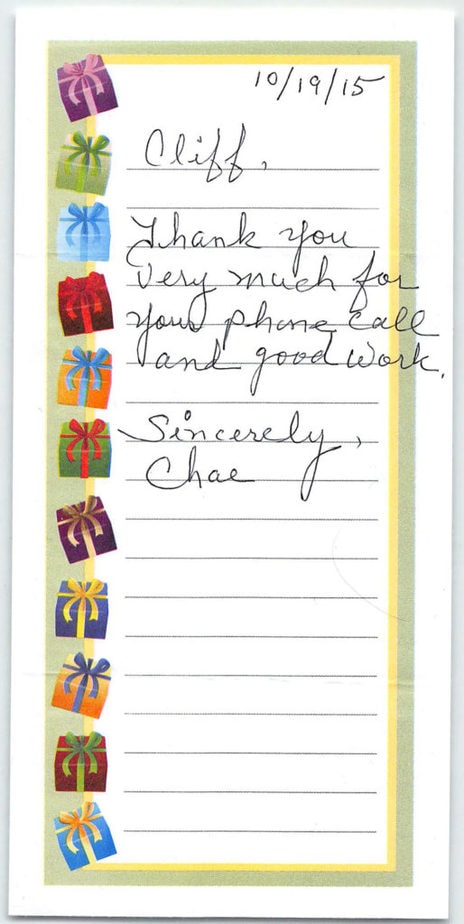 10/19/15
Cliff,
Thank you
very much for
your phone call
and good work.
Sincerely,
Chae